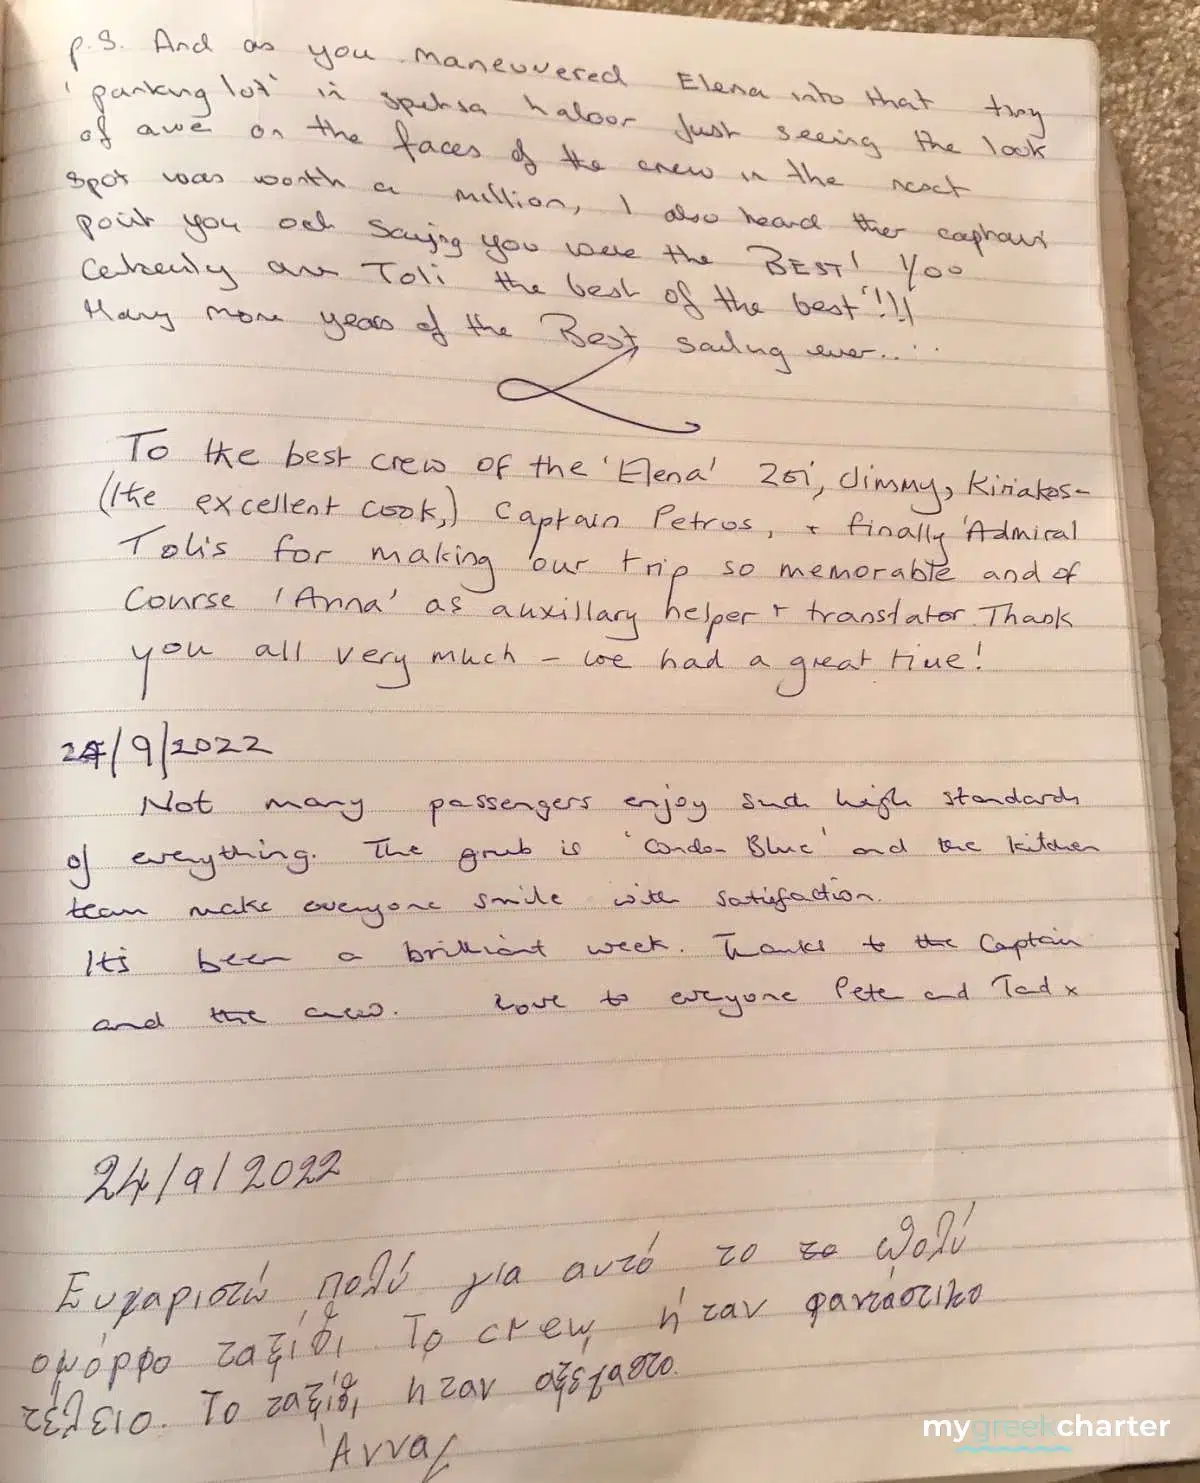 p.S. And as you maneuvered Elena into that tiny
'parking lot' in spetsa haboor Just seeing the look
of awe on the faces of the crew in the next
spot was worth a million, I also heard ther captain
point you out saying you were the BEST! You
Certenly are Toli the best of the best'!!!
Many more years of the Best sailing ever.....
To the best crew of the 'Elena' Zoi, Jimmy, Kiriakos-
(the excellent cook,) Captain Petros, + finally 'Admiral
Tolis for making our trip so memorable and of
Course 'Anna' as auxillary helper + translator. Thank
you all very much - we had a great time!
24/9/2022
Not many passengers enjoy such high standards
of everything. The grub is 'Cordon Blue' and the kitchen
team make everyone smile with satisfaction.
It's been a brilliant week. Thanks to the Captain
and the crew. Love to everyone Pete and Tad x
24/9/2022
Ευχαριστώ πολύ για αυτό το το πολύ
ομόρφο ταξίδι. Το crew, ήταν φανταστικο
τέλειο. Το ταξίδι ήταν αξέχαστο.
Άννα
mygreekcharter